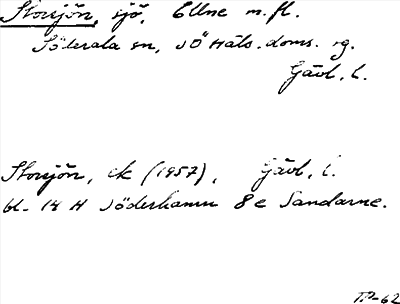 Storsjön, sjö, Ellne m.fl.
Söderala sn, SÖ Häls. doms. sg.
Gävl. l.
Storsjön, ek (1957), Gävl. l.
bl. 14 H Söderhamn 8 e Sandarne.
T.P-62